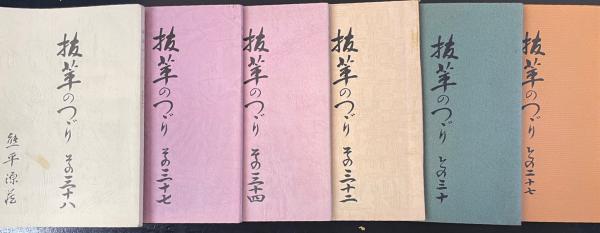 抜萃のつゞり その三十八
熊平源蔵
抜萃のつゞり その三十七
抜萃のつゞり その三十四
抜萃のつゞり その三十二
抜萃のつゞり その三十
抜萃のつゞり その二十七